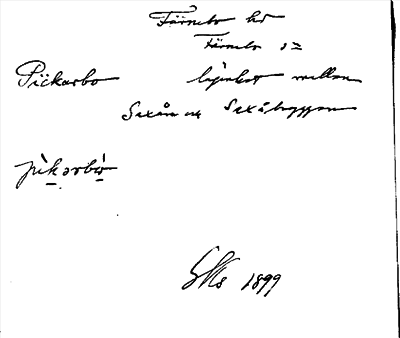 Färnebo hd
Färnebo sn
Pickarbo lägenhet mellan
Saxån och Saxåbryggan
pik arbo
1899